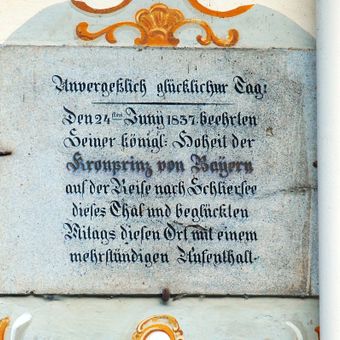 Unvergeßlich glücklicher Tag:
Den 24sten Juny 1837. beehrten
Seiner königl: Hoheit der
Kronprinz von Bayern
auf der Reise nach Schliersee
dieses Thal und beglückten
Mitags diesen Ort mit einem
mehrstündigen Aufenthalt.